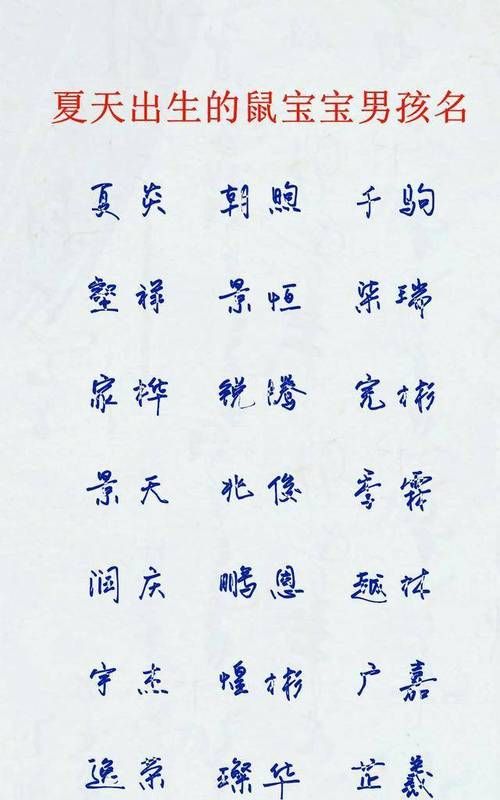 夏天出生的鼠宝宝男孩名
夏炎 朝煦 千驹
壑禄 景恒 柒瑞
家桦 锐腾 完彬
景天 兆俊 雪霖
润庆 鹏恩 越沐
宇杰 煌彬 广嘉
逸荣 璨华 芷羲